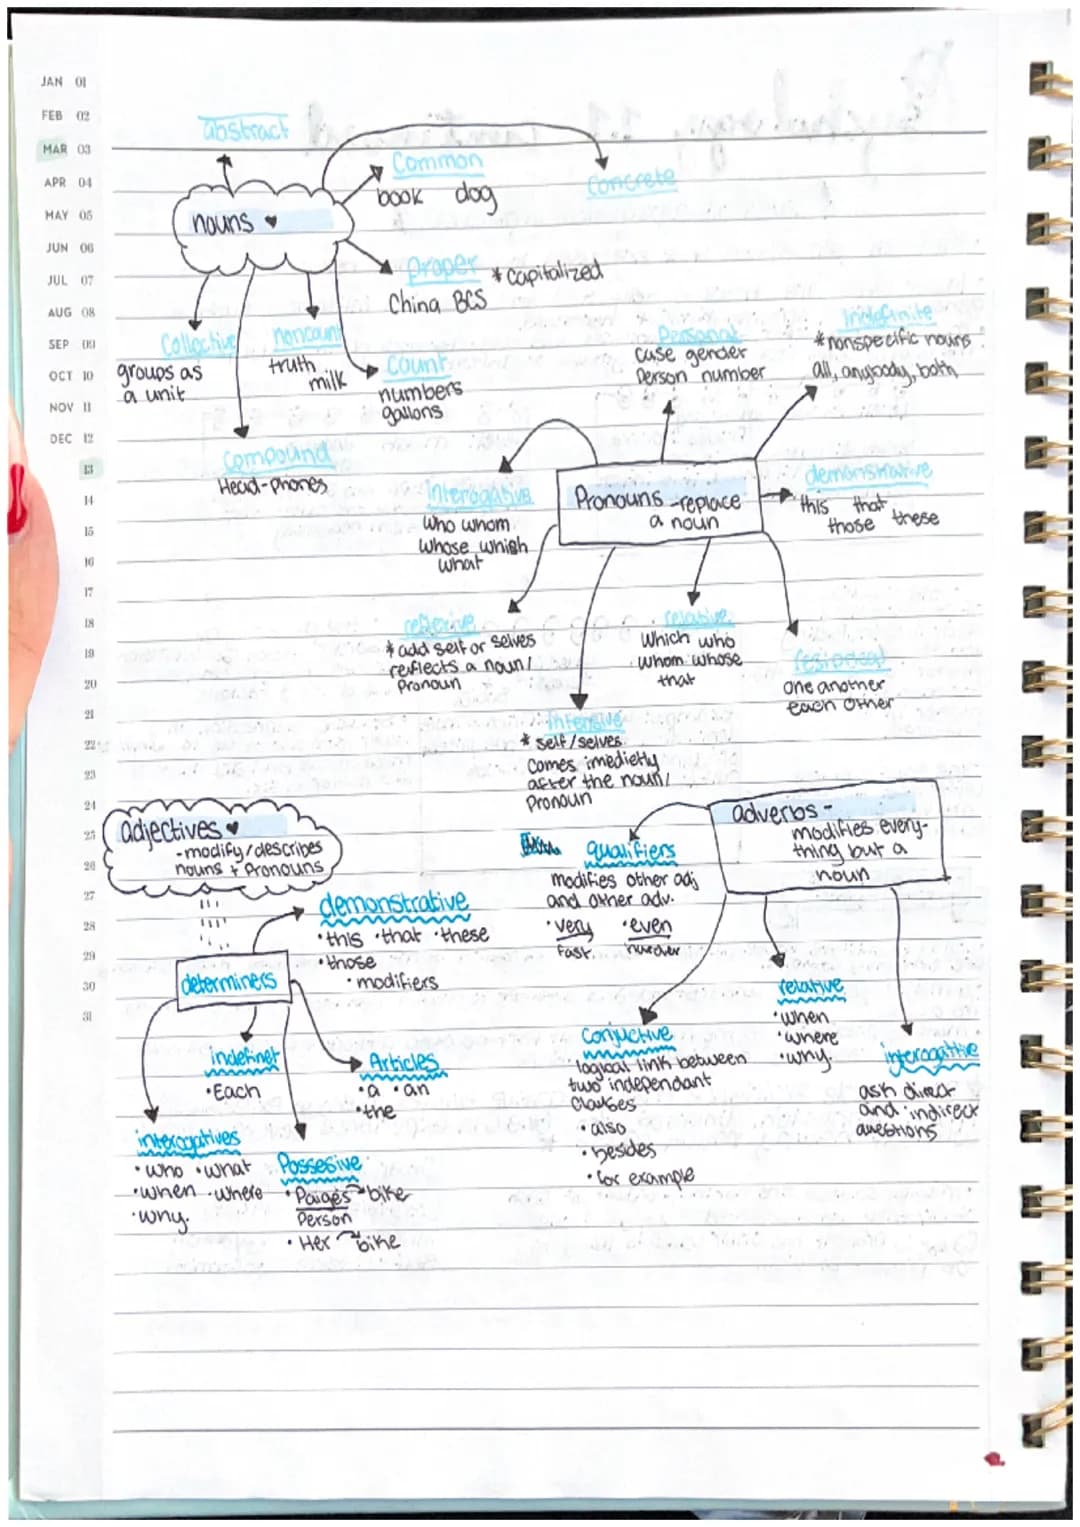 JAN 01
FEB 02
MAR 03
APR 04
MAY 05
JUN 06
JUL 07
AUG 08
SEP 09
OCT 10
NOV 11
DEC 12
13
14
15
16
17
18
19
20
21
22
23
24
25
26
27
28
29
30
31
abstract
Common
book dog
Concrete
nouns
Proper *Capitalized
China BCS
Collective
groups as
a unit
noncount
truth
milk
Count
numbers
gallons
Compound
Head-phones
Pronouns -replace
a noun
Personal
Case gender
Person number
Indefinite
*nonspecific nouns
all, anybody, both
demonstrative
this that
those these
Interogative
Who whom
whose which
what
reflexive
*add self or selves
reflects a noun/
Pronoun
Intensive
* self/selves
Comes imedietly
after the noun/
Pronoun
relative
Which who
whom whose
that
reciprocal
One another
each other
adjectives
-modify/describes
nouns + Pronouns
determiners
demonstrative
•this •that •these
•those
•modifiers
Articles
•a •an
•the
indefinet
•Each
interogatives
•who •what
•when •where
•why.
Possesive
•Paiges bike
Person
•Her bike
adverbs -
modifies every-
thing but a
noun
qualifiers
modifies other adj
and other adv.
•very •even
Fast
Conjuctive
logical link between
two independant
Clauses
•also
•besides
•for example
relative
•when
•where
•why
interogative
ask direct
and indirect
questions